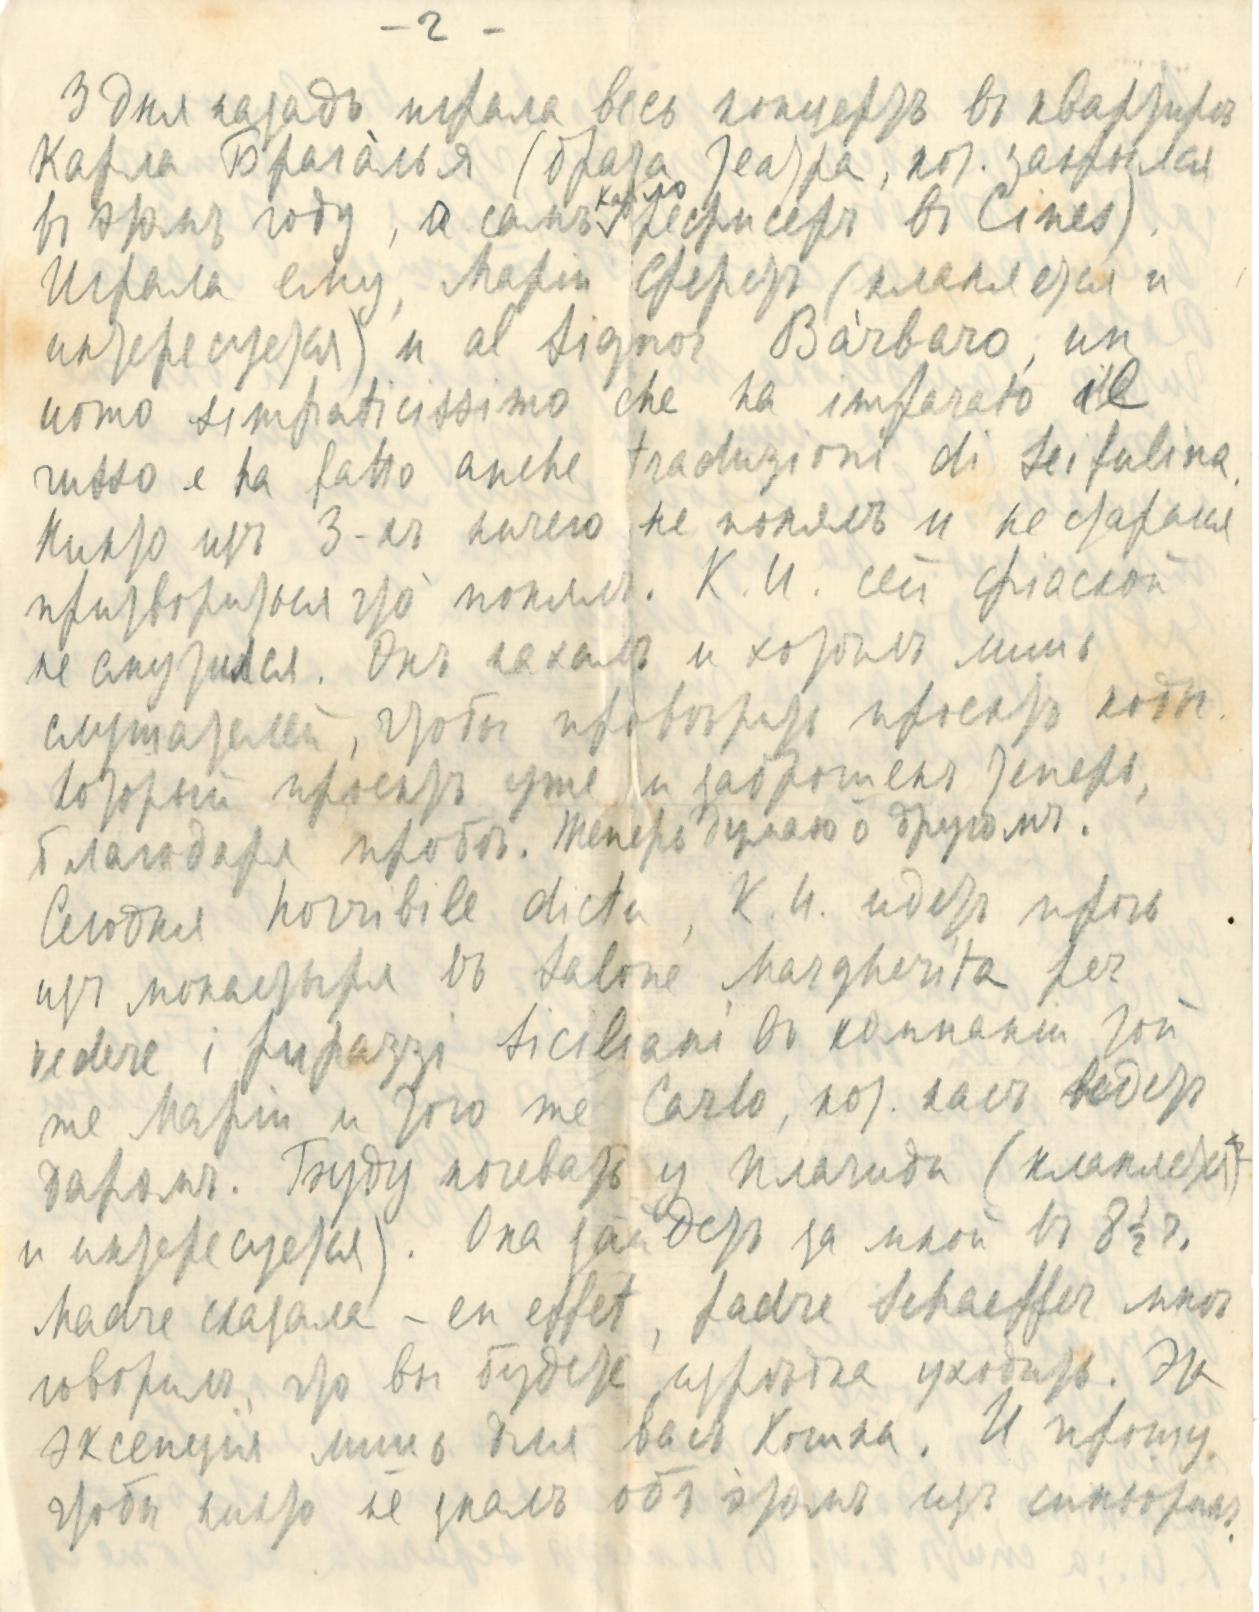 - 2 -
3 дня назадъ играла весь концертъ въ квартирѣ
Карла Брагàлья (брата театра, кот. закрылся
въ этомъ году, а самъ Карло режисеръ въ Cines).
Играла ему, Маріи Ферезъ (кланяется и
интересуется) и al Signor Bàrbaro, un
uomo simpaticissimo che ha imparato il
russo e ha fatto anche traduzioni di Seifulina.
Никто изъ 3-хъ ничего не понялъ и не старался
притвориться что понялъ. К.И. сей фіаской
не смутился. Онъ нахалъ и хотѣлъ лишь
слушателей, чтобы провѣрить проектъ коды.
Который проектъ уже и заброшенъ теперь,
благодаря пробѣ. Теперь думаю о другомъ.
Сегодня horribile dictu, К.И. идетъ прочь
изъ монастыря въ Salone Margherita per
vedere i pupazzi Siciliani въ компаніи той
же Маріи и того же Carlo, кот. насъ ведетъ
даромъ. Буду ночевать у Плачиди (кланяется
и интересуется). Она зайдетъ за мной въ 8 1/2 ч.
Madre сказала - en effet, padre Schaeffer мнѣ
говорилъ, что вы будете изрѣдка уходить. Эта
эксепція лишь для васъ Кошка. И прошу,
чтобы никто не зналъ объ этомъ изъ синьоринъ.